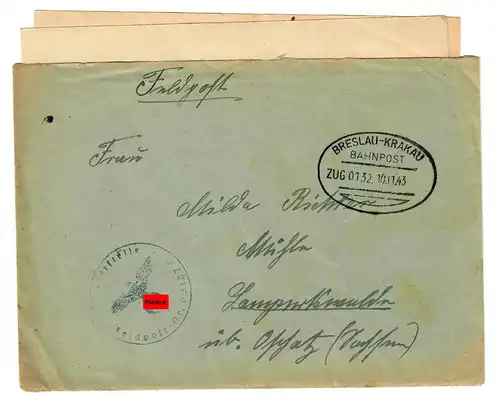 Feldpost
Frau
BRESLAU-KRAKAU
BAHNPOST
ZUG 0132 10.11.43
Milda Richter
Mühle
Lampertswalde
üb. Oschatz (Sachsen)